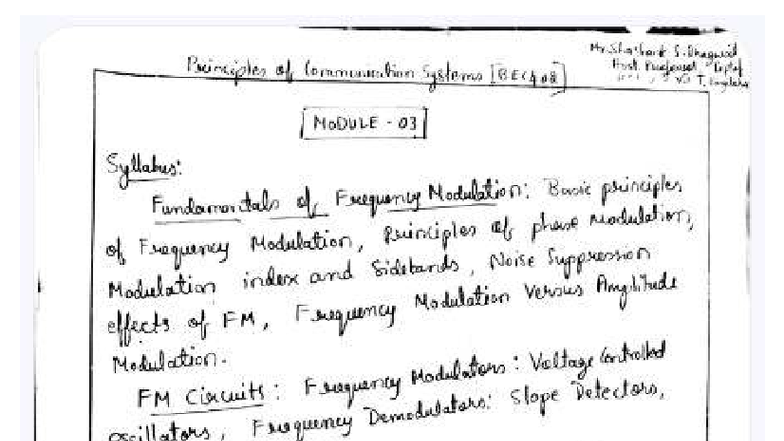 Mr. Shashank S. Bhagwat
Principles of Communication Systems [BEC402]
Asst. Professor, Dept of
MODULE - 03
Syllabus:
Fundamentals of Frequency Modulation: Basic principles
of Frequency Modulation, Principles of phase Modulation,
Modulation index and Sidebands, Noise Suppression
effects of FM, Frequency Modulation Versus Amplitude
Modulation.
FM Circuits: Frequency Modulators: Voltage Controlled
oscillators, Frequency Demodulators: Slope Detectors,